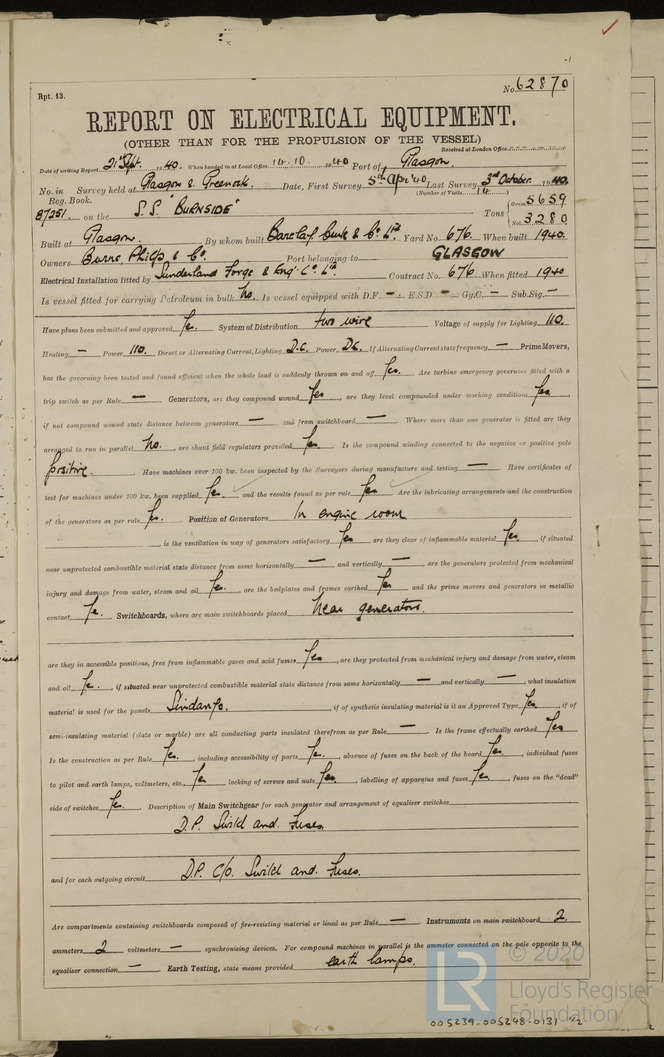 No. 62870
Rpt. 13.
REPORT ON ELECTRICAL EQUIPMENT.
(OTHER THAN FOR THE PROPULSION OF THE VESSEL)
Received at London Office
Date of writing Report 21 Sept. 1940. When handed in at Local Office 14.10.1940 Port of Glasgow.
No. in Survey held at Glasgow & Greenock. Date, First Survey 5th Apr '40 Last Survey 3rd October 1940.
Reg. Book. (Number of Visits 14)
87251. on the S.S. "BURNSIDE" Tons { Gross 5659
Net 3280
Built at Glasgow. By whom built Barclay Curle & Co. Ltd Yard No. 676. When built 1940.
Owners Burns Philp & Co. Port belonging to GLASGOW
Electrical Installation fitted by Sunderland Forge & Eng. Co. Ld. Contract No. 676 When fitted 1940
Is vessel fitted for carrying Petroleum in bulk No. Is vessel equipped with D.F. — E.S.D — Gy.C. — Sub.Sig. —
Have plans been submitted and approved Yes. System of Distribution two wire Voltage of supply for Lighting 110.
Heating — Power 110. Direct or Alternating Current, Lighting D.C. Power D.C. If Alternating Current state frequency — Prime Movers,
has the governing been tested and found efficient when the whole load is suddenly thrown on and off Yes. Are turbine emergency governors fitted with a
trip switch as per Rule — Generators, are they compound wound Yes, are they level compounded under working conditions Yes,
if not compound wound state distance between generators — and from switchboard — Where more than one generator is fitted are they
arranged to run in parallel No., are shunt field regulators provided Yes. Is the compound winding connected to the negative or positive pole
positive. Have machines over 100 kw. been inspected by the Surveyors during manufacture and testing — Have certificates of
test for machines under 100 kw. been supplied Yes. and the results found as per rule Yes Are the lubricating arrangements and the construction
of the generators as per rule Yes. Position of Generators In engine room
is the ventilation in way of generators satisfactory Yes are they clear of inflammable material Yes, if situated
near unprotected combustible material state distance from same horizontally — and vertically —, are the generators protected from mechanical
injury and damage from water, steam and oil Yes., are the bedplates and frames earthed Yes and the prime movers and generators in metallic
contact Yes. Switchboards, where are main switchboards placed Near generators.
are they in accessible positions, free from inflammable gases and acid fumes Yes, are they protected from mechanical injury and damage from water, steam
and oil Yes., if situated near unprotected combustible material state distance from same horizontally — and vertically —, what insulation
material is used for the panels Sindanyo., if of synthetic insulating material is it an Approved Type Yes, if of
semi-insulating material (slate or marble) are all conducting parts insulated therefrom as per Rule — Is the frame effectually earthed Yes
Is the construction as per Rule Yes., including accessibility of parts Yes., absence of fuses on the back of the board Yes, individual fuses
to pilot and earth lamps, voltmeters, etc., Yes locking of screws and nuts Yes, labelling of apparatus and fuses Yes, fuses on the "dead"
side of switches Yes. Description of Main Switchgear for each generator and arrangement of equaliser switches
D.P. Switch and Fuses
and for each outgoing circuit D.P. C/O. Switch and Fuses.
Are compartments containing switchboards composed of fire-resisting material or lined as per Rule — Instruments on main switchboard 2
ammeters 2 voltmeters — synchronising devices. For compound machines in parallel is the ammeter connected on the pole opposite to the
equaliser connection — Earth Testing, state means provided earth lamps.
© 2020
LR
Lloyd's Register
Foundation
005239-005248-0131 1/2